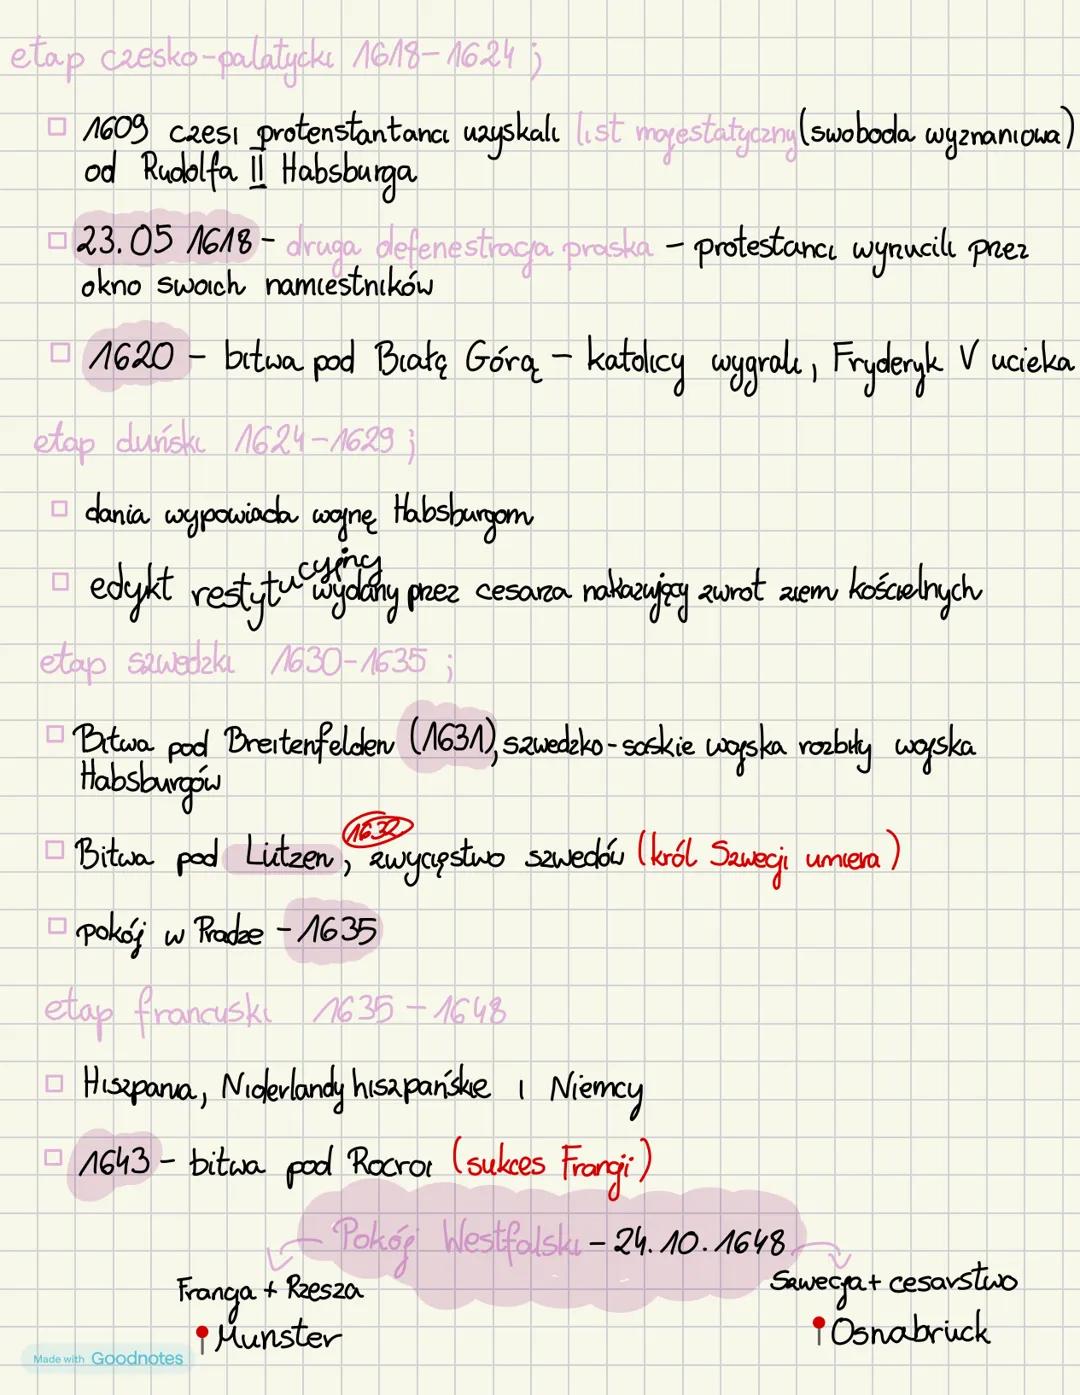 etap czesko-palatycki 1618-1624 ;
1609 czesi protenstantanci uzyskali list majestatyczny (swoboda wyznaniowa)
od Rudolfa II Habsburga
23.05 1618 - druga defenestracja praska - protestanci wyrzucili przez
okno swoich namiestników
1620 - bitwa pod Białą Górą - katolicy wygrali, Fryderyk V ucieka
etap duński 1624-1629 ;
dania wypowiada wojnę Habsburgom
edykt restytucyjny wydany przez cesarza nakazujący zwrot ziem kościelnych
etap szwedzki 1630-1635 ;
Bitwa pod Breitenfelden (1631), szwedzko-saskie wojska rozbiły wojska
Habsburgów
1632
Bitwa pod Lützen, zwycięstwo szwedów (król Szwecji umiera)
pokój w Pradze - 1635
etap francuski 1635 - 1648
Hiszpania, Niderlandy hiszpańskie i Niemcy
1643 - bitwa pod Rocroi (sukces Francji)
Pokój Westfalski - 24.10.1648
Francja + Rzesza
Szwecja + cesarstwo
Munster
Osnabrück
Made with Goodnotes